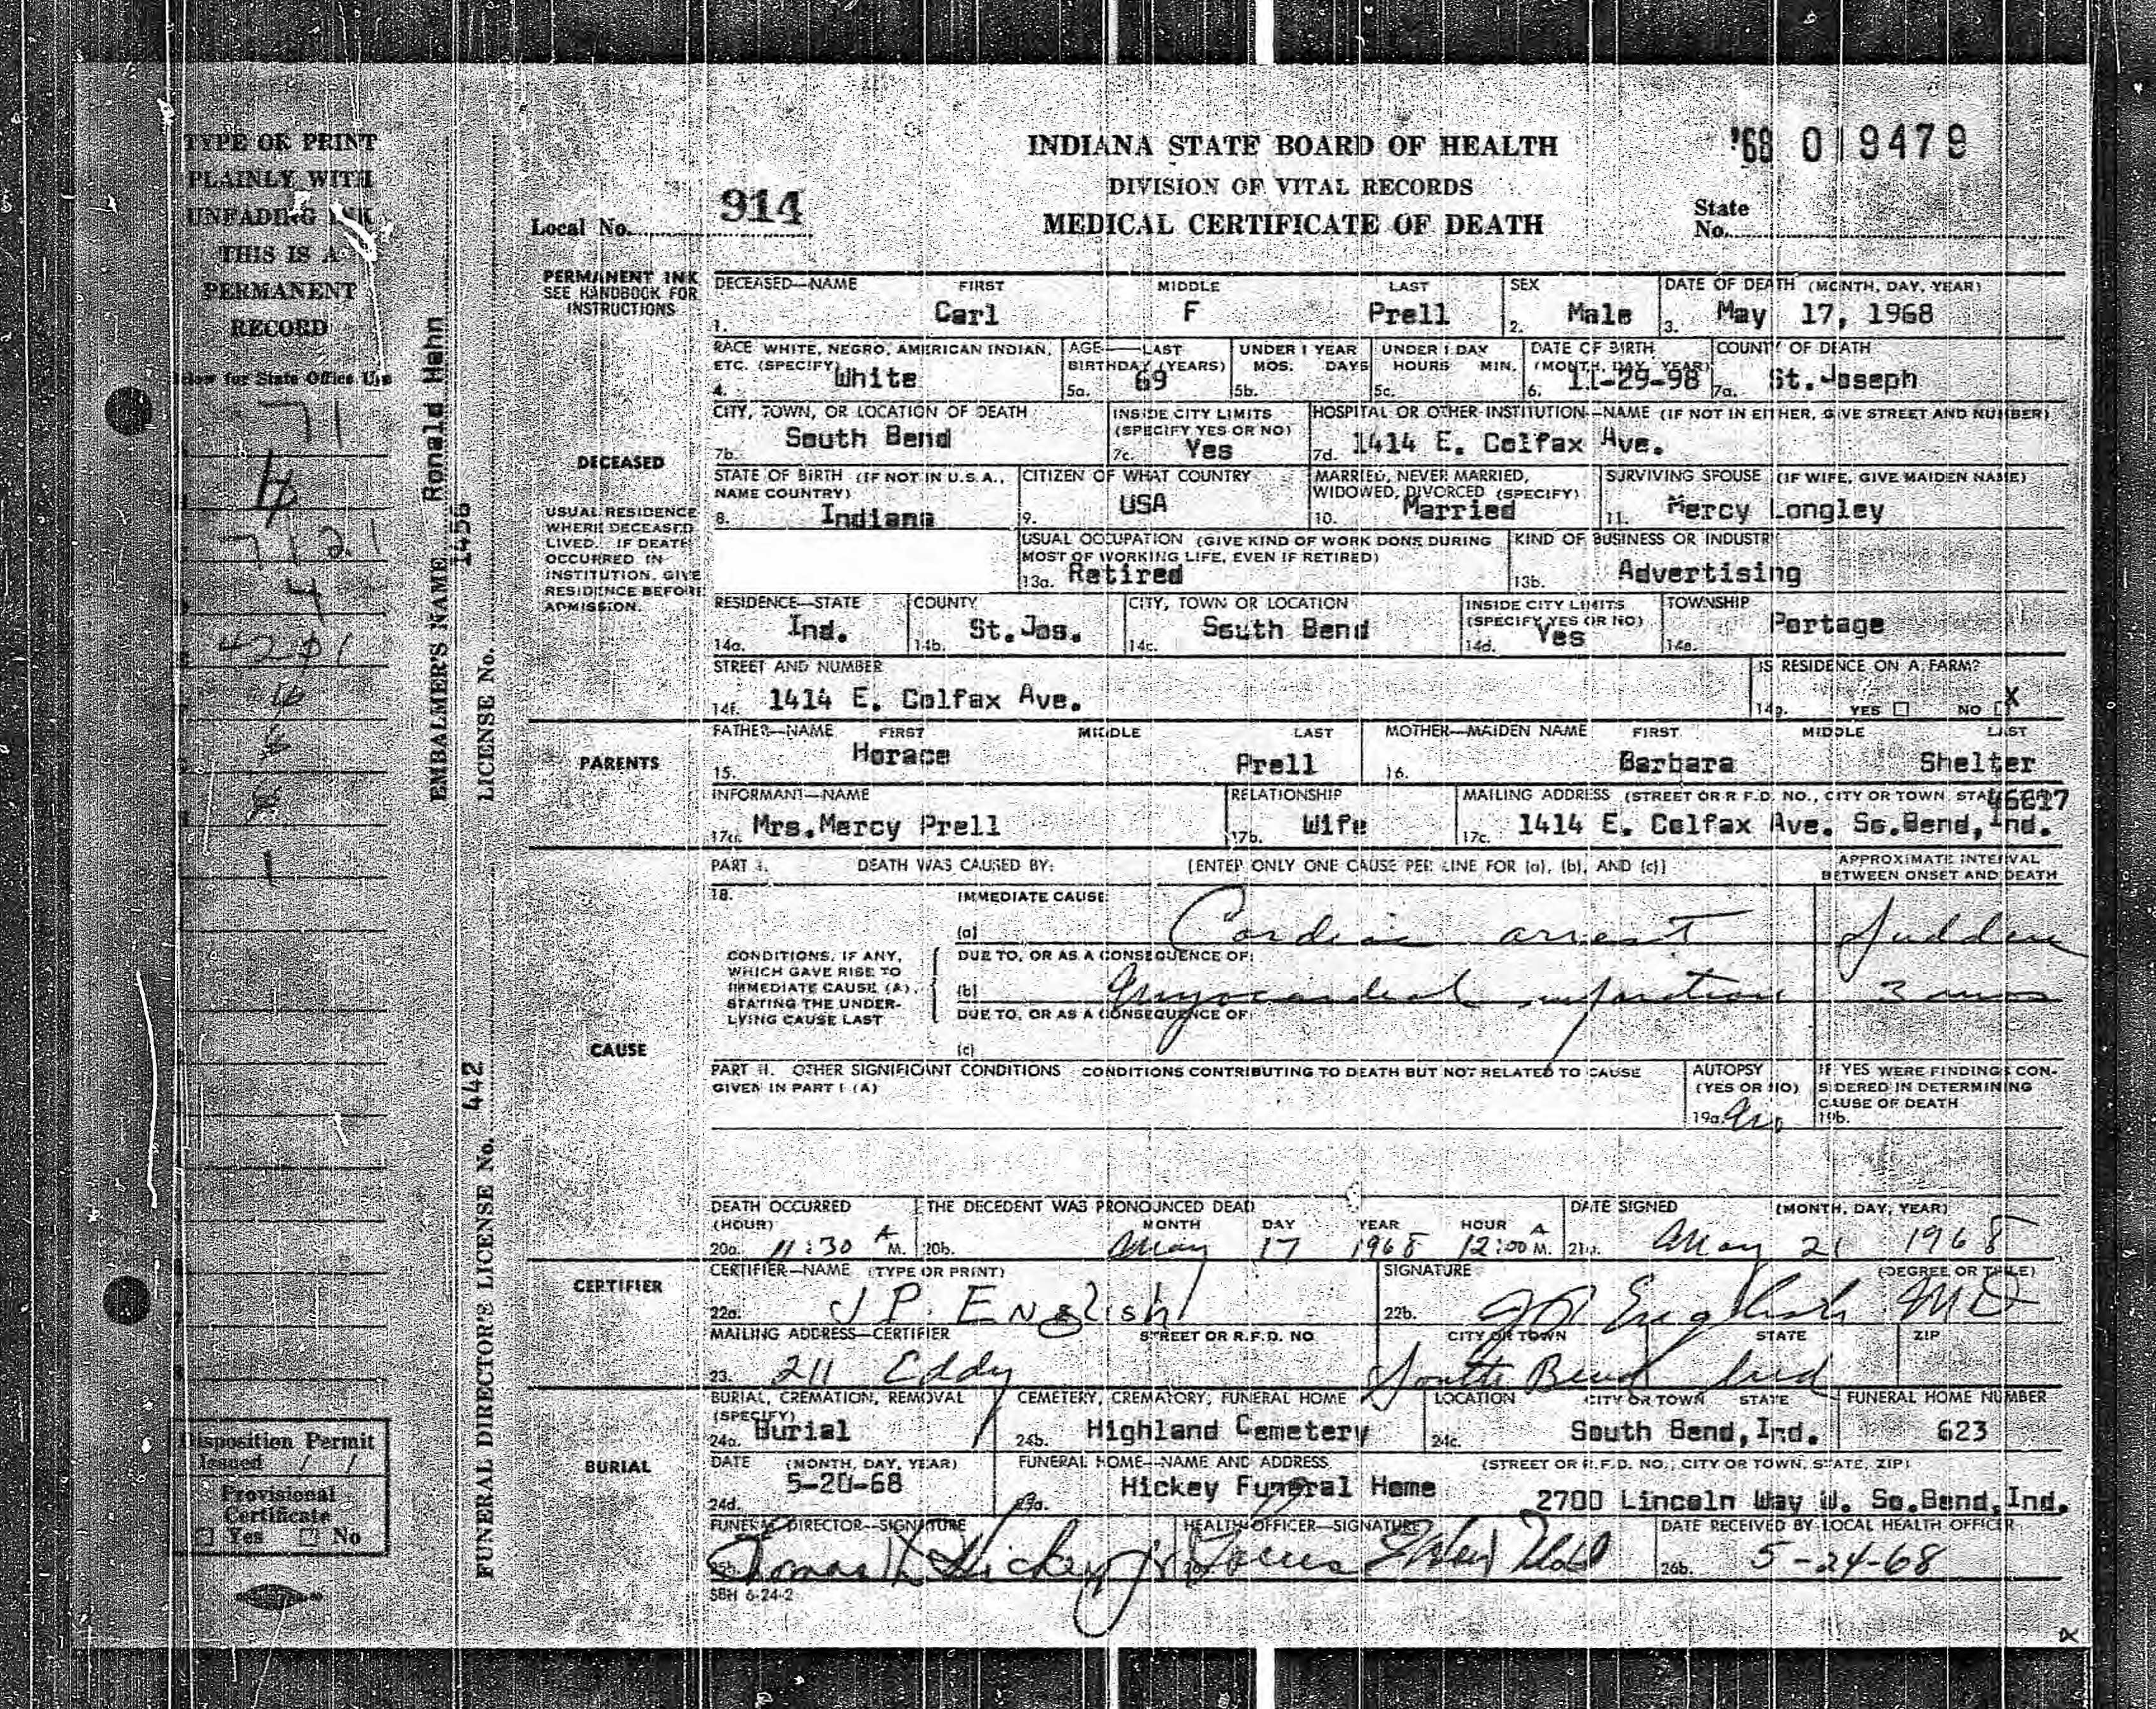 TYPE OR PRINT
PLAINLY WITH
UNFADING INK
THIS IS A
PERMANENT
RECORD
Below for State Office Use
71
4
7121
4
1
Disposition Permit
Issued / /
Provisional
Certificate
Yes No
EMBALMER'S NAME Ronald Hahn
LICENSE No. 1456
FUNERAL DIRECTOR'S LICENSE No. 442
INDIANA STATE BOARD OF HEALTH
DIVISION OF VITAL RECORDS
MEDICAL CERTIFICATE OF DEATH
'68 019479
Local No. 914
State
No.
PERMANENT INK
SEE HANDBOOK FOR
INSTRUCTIONS
DECEASED—NAME FIRST MIDDLE LAST SEX DATE OF DEATH (MONTH, DAY, YEAR)
1. Carl F Prell 2. Male 3. May 17, 1968
RACE WHITE, NEGRO, AMERICAN INDIAN, AGE—LAST UNDER 1 YEAR UNDER 1 DAY DATE OF BIRTH COUNTY OF DEATH
ETC. (SPECIFY) BIRTHDAY (YEARS) MOS. DAYS HOURS MIN. (MONTH, DAY, YEAR)
4. White 5a. 69 5b. 5c. 6. 11-29-98 7a. St. Joseph
CITY, TOWN, OR LOCATION OF DEATH INSIDE CITY LIMITS HOSPITAL OR OTHER INSTITUTION—NAME (IF NOT IN EITHER, GIVE STREET AND NUMBER)
(SPECIFY YES OR NO)
7b. South Bend 7c. Yes 7d. 1414 E. Colfax Ave.
DECEASED
STATE OF BIRTH (IF NOT IN U.S.A., CITIZEN OF WHAT COUNTRY MARRIED, NEVER MARRIED, SURVIVING SPOUSE (IF WIFE, GIVE MAIDEN NAME)
NAME COUNTRY) WIDOWED, DIVORCED (SPECIFY)
8. Indiana 9. USA 10. Married 11. Mercy Longley
USUAL RESIDENCE
WHERE DECEASED
LIVED. IF DEATH
OCCURRED IN
INSTITUTION, GIVE
RESIDENCE BEFORE
ADMISSION.
USUAL OCCUPATION (GIVE KIND OF WORK DONE DURING KIND OF BUSINESS OR INDUSTRY
MOST OF WORKING LIFE, EVEN IF RETIRED)
13a. Retired 13b. Advertising
RESIDENCE—STATE COUNTY CITY, TOWN OR LOCATION INSIDE CITY LIMITS TOWNSHIP
(SPECIFY YES OR NO)
14a. Ind. 14b. St. Jos. 14c. South Bend 14d. Yes 14e. Portage
STREET AND NUMBER IS RESIDENCE ON A FARM?
14f. 1414 E. Colfax Ave. 14g. YES NO X
PARENTS
FATHER—NAME FIRST MIDDLE LAST MOTHER—MAIDEN NAME FIRST MIDDLE LAST
15. Horace Prell 16. Barbara Shelter
INFORMANT—NAME RELATIONSHIP MAILING ADDRESS (STREET OR R.F.D. NO., CITY OR TOWN 46617
17a. Mrs. Mercy Prell 17b. Wife 17c. 1414 E. Colfax Ave. So. Bend, Ind.
PART I. DEATH WAS CAUSED BY: [ENTER ONLY ONE CAUSE PER LINE FOR (a), (b), AND (c)] APPROXIMATE INTERVAL
BETWEEN ONSET AND DEATH
18. IMMEDIATE CAUSE
(a) Cardiac arrest Sudden
CONDITIONS, IF ANY,
WHICH GAVE RISE TO
IMMEDIATE CAUSE (A),
STATING THE UNDER-
LYING CAUSE LAST
DUE TO, OR AS A CONSEQUENCE OF:
(b) Myocardial infarction 3 mos
DUE TO, OR AS A CONSEQUENCE OF:
(c)
CAUSE
PART II. OTHER SIGNIFICANT CONDITIONS CONDITIONS CONTRIBUTING TO DEATH BUT NOT RELATED TO CAUSE
GIVEN IN PART I (A)
AUTOPSY
(YES OR NO)
19a. No
IF YES WERE FINDINGS CON-
SIDERED IN DETERMINING
CAUSE OF DEATH
19b.
DEATH OCCURRED THE DECEDENT WAS PRONOUNCED DEAD DATE SIGNED (MONTH, DAY, YEAR)
(HOUR) MONTH DAY YEAR HOUR
20a. 11:30 A M. 20b. May 17 1968 12:00 A M. 21a. May 21 1968
CERTIFIER
CERTIFIER—NAME (TYPE OR PRINT) SIGNATURE (DEGREE OR TITLE)
22a. J P. English 22b. JP English MD
MAILING ADDRESS—CERTIFIER STREET OR R.F.D. NO. CITY OR TOWN STATE ZIP
23. 211 Eddy South Bend Ind
BURIAL, CREMATION, REMOVAL CEMETERY, CREMATORY, FUNERAL HOME LOCATION CITY OR TOWN STATE FUNERAL HOME NUMBER
(SPECIFY)
24a. Burial 24b. Highland Cemetery 24c. South Bend, Ind. 623
BURIAL
DATE (MONTH, DAY, YEAR) FUNERAL HOME—NAME AND ADDRESS (STREET OR R.F.D. NO., CITY OR TOWN, STATE, ZIP)
24d. 5-20-68 25a. Hickey Funeral Home 2700 Lincoln Way W. So. Bend, Ind.
FUNERAL DIRECTOR—SIGNATURE HEALTH OFFICER—SIGNATURE DATE RECEIVED BY LOCAL HEALTH OFFICER
25b. Thomas Hickey Jr 26b. 5-24-68
SBH 6-24-2